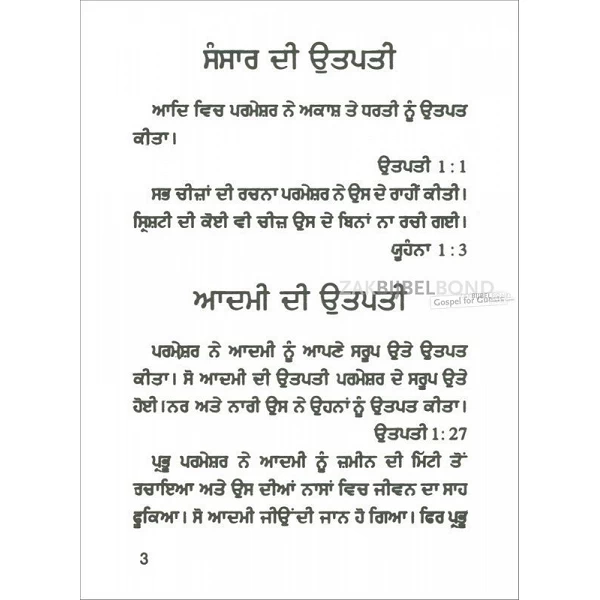 ਸੰਸਾਰ ਦੀ ਉਤਪਤੀ
ਆਦਿ ਵਿਚ ਪਰਮੇਸ਼ਰ ਨੇ ਅਕਾਸ਼ ਤੇ ਧਰਤੀ ਨੂੰ ਉਤਪਤ
ਕੀਤਾ।
ਉਤਪਤੀ 1:1
ਸਭ ਚੀਜ਼ਾਂ ਦੀ ਰਚਨਾ ਪਰਮੇਸ਼ਰ ਨੇ ਉਸ ਦੇ ਰਾਹੀਂ ਕੀਤੀ।
ਸ੍ਰਿਸ਼ਟੀ ਦੀ ਕੋਈ ਵੀ ਚੀਜ਼ ਉਸ ਦੇ ਬਿਨਾਂ ਨਾ ਰਚੀ ਗਈ।
ਯੂਹੰਨਾ 1:3
ZAKBIJBELBOND
BIJBELBOND
Gospel for Guests
ਆਦਮੀ ਦੀ ਉਤਪਤੀ
ਪਰਮੇਸ਼ਰ ਨੇ ਆਦਮੀ ਨੂੰ ਆਪਣੇ ਸਰੂਪ ਉਤੇ ਉਤਪਤ
ਕੀਤਾ। ਸੋ ਆਦਮੀ ਦੀ ਉਤਪਤੀ ਪਰਮੇਸ਼ਰ ਦੇ ਸਰੂਪ ਉਤੇ
ਹੋਈ।ਨਰ ਅਤੇ ਨਾਰੀ ਉਸ ਨੇ ਉਹਨਾਂ ਨੂੰ ਉਤਪਤ ਕੀਤਾ।
ਉਤਪਤੀ 1:27
ਪ੍ਰਭੂ ਪਰਮੇਸ਼ਰ ਨੇ ਆਦਮੀ ਨੂੰ ਜ਼ਮੀਨ ਦੀ ਮਿੱਟੀ ਤੋਂ
ਰਚਾਇਆ ਅਤੇ ਉਸ ਦੀਆਂ ਨਾਸਾਂ ਵਿਚ ਜੀਵਨ ਦਾ ਸਾਹ
ਫੂਕਿਆ। ਸੋ ਆਦਮੀ ਜੀਉਂਦੀ ਜਾਨ ਹੋ ਗਿਆ। ਫਿਰ ਪ੍ਰਭੂ
3